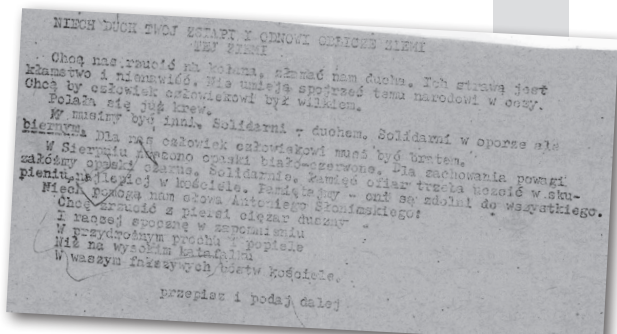 NIECH DUCH TWOJ ZSTĄPI I ODNOWI OBLICZE ZIEMI
TEJ ZIEMI
Chcą nas rzucić na kolana, złamać nam ducha. Ich strawą jest
kłamstwo i nienawiść. Nie umieją spojrzeć temu narodowi w oczy.
Chcą by człowiek człowiekowi był wilkiem.
Polała się już krew.
W musimy być inni. Solidarni - duchem. Solidarni w oporze ale
biernym. Dla nas człowiek człowiekowi musi być bratem.
W Sierpniu noszono opaski biało-czerwone. Dla zachowania powagi
załóżmy opaski czarne. Solidarnie. Pamięć ofiar trzeba uczcić w sku-
pieniu, najlepiej w kościele. Pamiętajmy - oni są zdolni do wszystkiego.
Niech pomogą nam słowa Antoniego Słonimskiego:
Chcę zrzucić z piersi ciężar duszny
I raczej spocznę w zapomnieniu
W przydrożnym prochu i popiele
Niż na wysokim katafalku
W waszym fałszywych bóstw kościele.
przepisz i podaj dalej